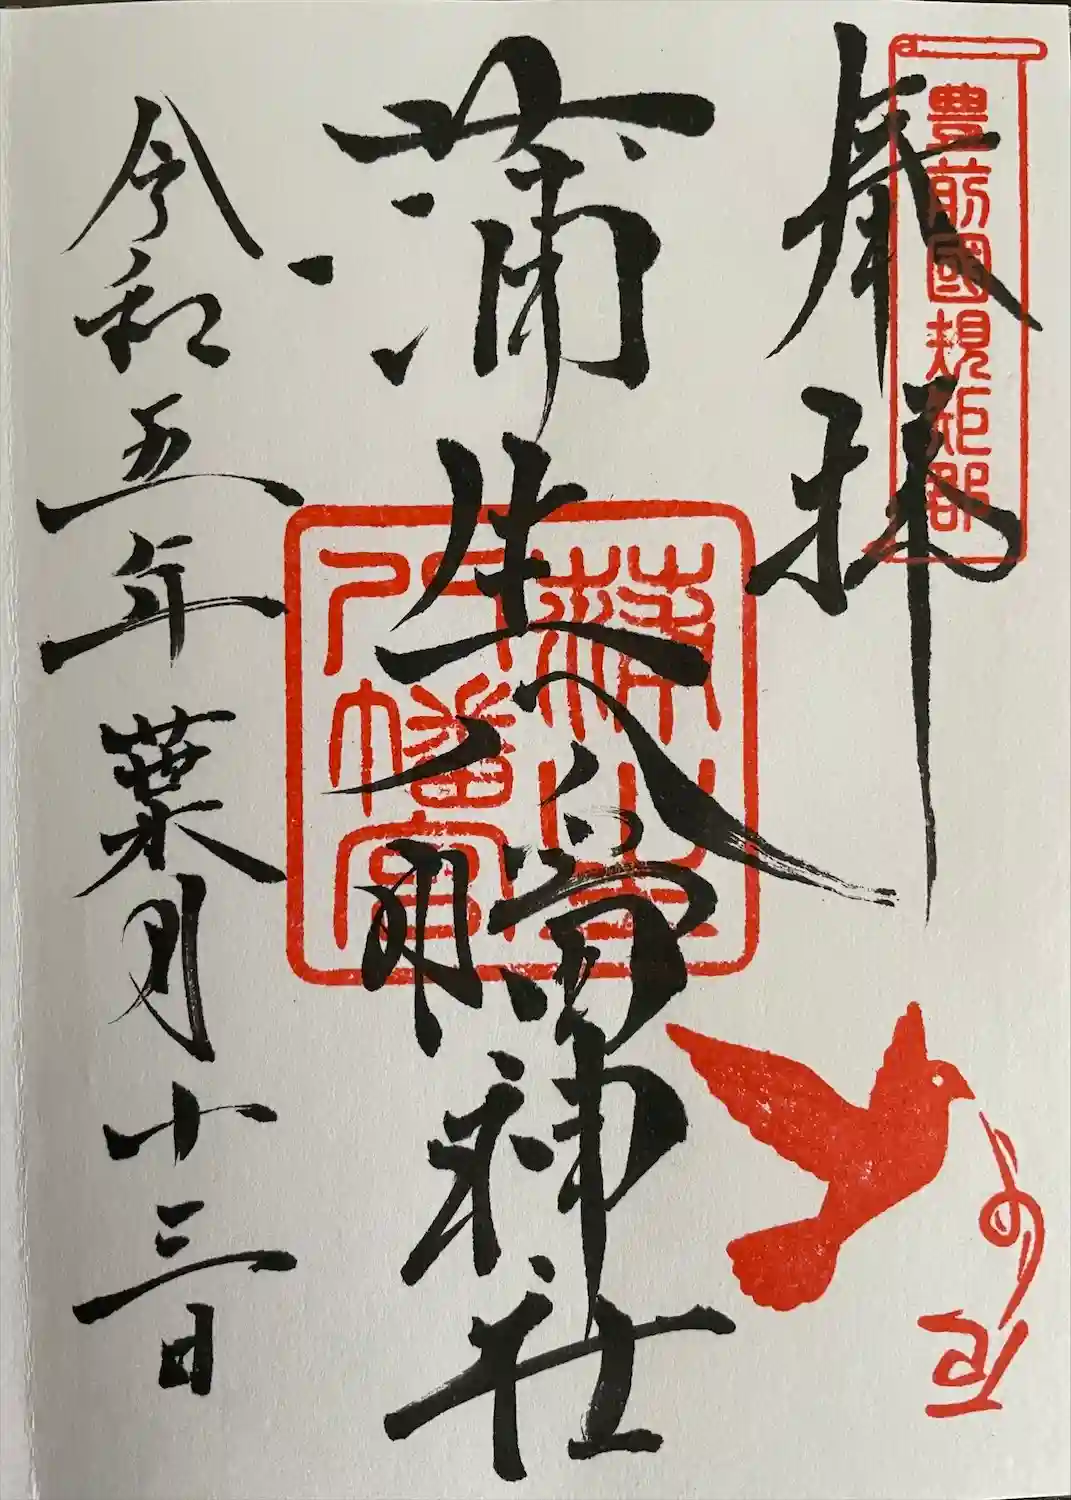 奉拝
豊前國規矩郡
蒲生八幡神社
蒲生
八幡宮
令和五年葉月十三日